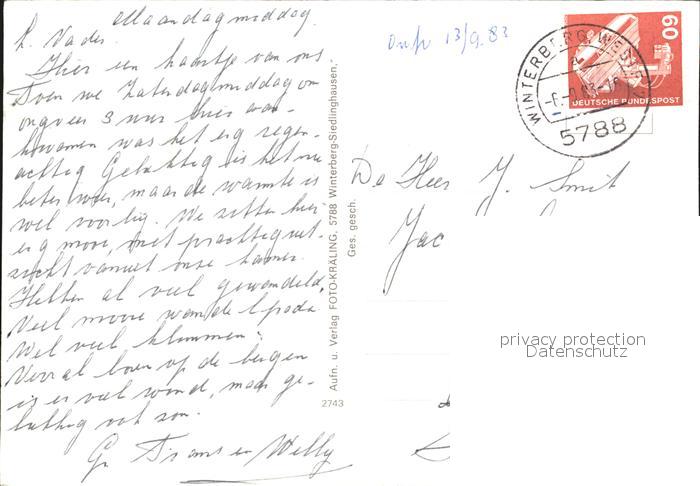 Maandagmiddag.
L. Vader.
Hier een kaartje van ons
Toen we Zaterdagmiddag om
ongeveer 3 uur hier aan-
kwamen was het erg regen-
achtig Gelukkig is het nu
beter weer, maar de warmte is
wel voorbij. We zitten hier
erg mooi, met prachtig uit-
zicht vanuit onze kamer.
Hebben al veel gewandeld,
Veel mooie wandelpaden
Wel veel klimmen.
Vooral boven op de bergen
is er veel wind, maar ge-
lukkig ook zon.
Gr Frans en Welly
2743
Aufn. u. Verlag FOTO-KRÄLING, 5788 Winterberg-Siedlinghausen,"
Ges. gesch.
13/9.83
60
DEUTSCHE BUNDESPOST
WINTERBERG, WESTF
5788
De Heer J. Smit
Jac
privacy protection
Datenschutz